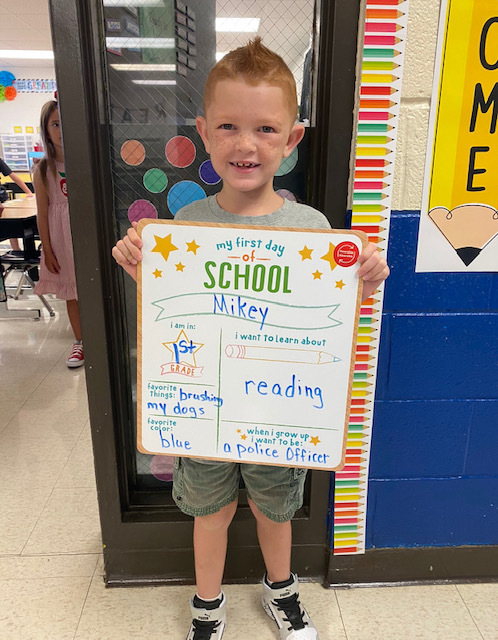 my first day
of
SCHOOL
Mikey
i am in:
1st
GRADE
i want to learn about
reading
favorite
things: brushing
my dogs
favorite
color:
blue
when i grow up
i want to be:
a police Officer
O
M
E